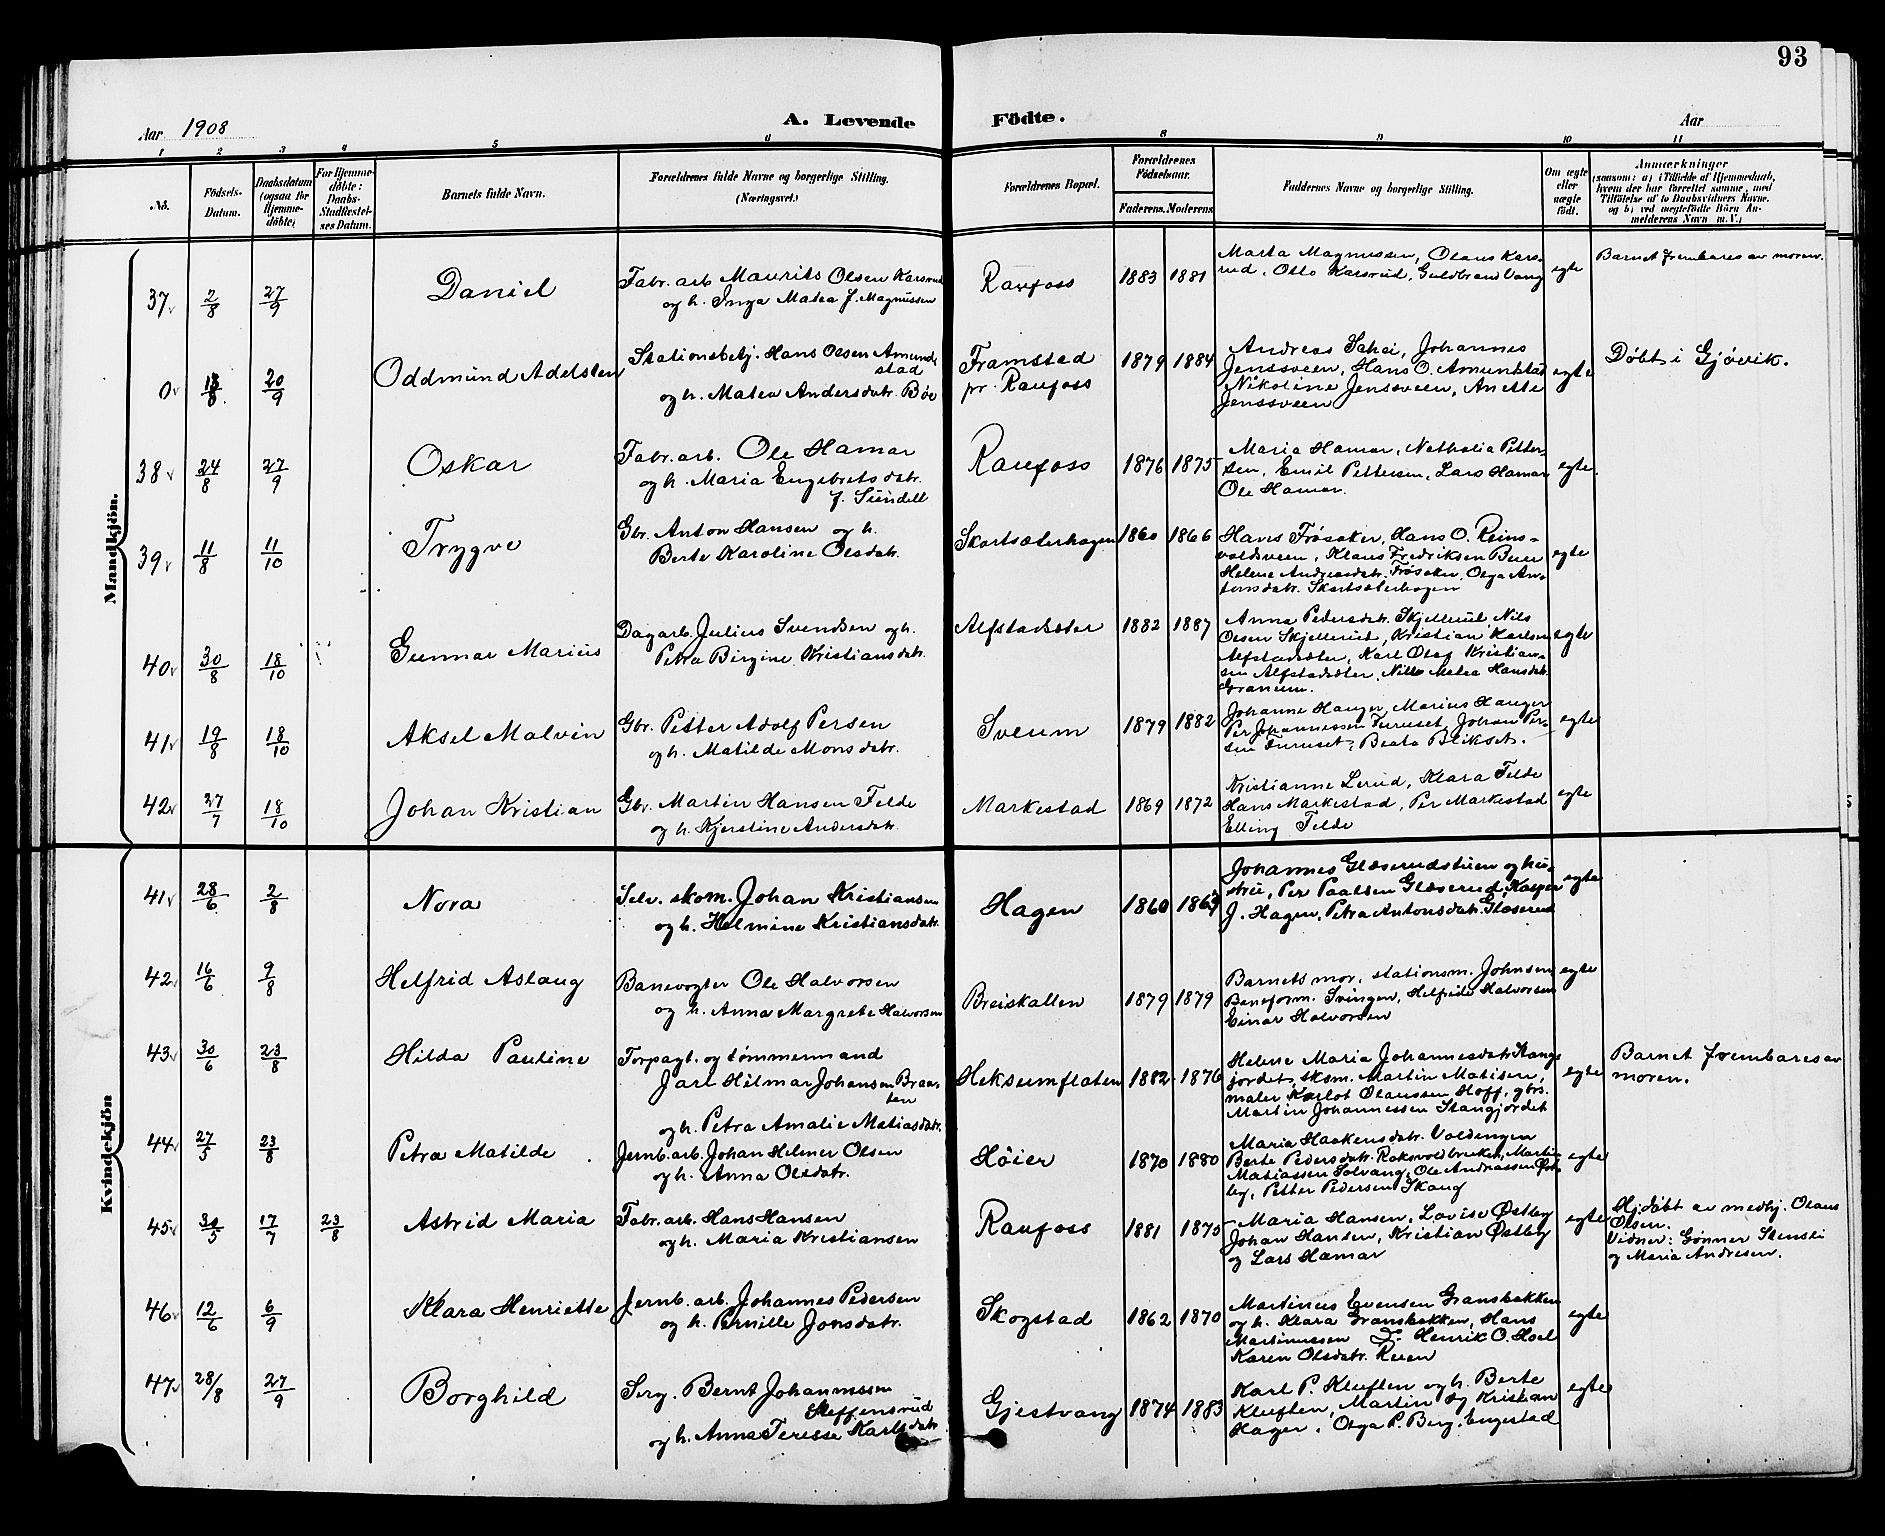 93
Aar 1908
A. Levende Födte.
Aar
1 2 3 4 5 6 8 9 10 11
No.
Födsels-Datum.
Daabsdatum (ogsaa for Hjemme-döbte)
For Hjemme-döbte: Daabs-Stadfæstel-ses Datum.
Barnets fulde Navn.
Forældrenes fulde Navne og borgerlige Stilling. (Næringsvei.)
Forældrenes Bopæl.
Forældrenes Födselsaar.
Faderens. Moderens
Faddernes Navne og borgerlige Stilling.
Om ægte eller uægte født.
Anmærkninger
(saasom: a) i Tilfælde af Hjemmedaab, hvem der har forrettet samme, med Tilföielse af to Daabsvidners Navne. og b) ved uægtefödte Börn An-melderens Navn m. V.)
Mandkjön.
37 2/8 27/9 Daniel
Fabr. arb. Maurits Olsen Karsrud
og h. Inga Matea f. Magnussen
Raufoss 1883 1881
Marta Magnussen, Olaus Kars-
rud, Otto Karsrud, Guldbrand Vang
egte
Barnet frembares av moren.
0 13/8 20/9 Oddmund Adelsten
Stationsbetj. Hans Olsen Amund
stad
og h. Matea Andersdatr. Bøe
Framstad
pr. Raufoss
1879 1884
Andreas Johannes
Jenssveen, Hans O. Amundstad
Nikoline Jenssveen, Anette
Jenssveen
egte
Døbt i Gjøvik.
38 24/8 27/9 Oskar
Fabr. arb. Ole Hamar
og h. Maria Engebretsdatr.
f. Sundell
Raufoss 1876 1875
Maria Hamar, Nathalia Petter-
sen, Emil Pettersen, Lars Hamar
Ole Hamar.
egte
39 11/8 11/10 Trygve
Gbr. Anton Hansen og h.
Berte Karoline Olsdatr.
Skartsæterhagen 1860 1866
Hans Frøsaker, Hans O. Reins-
voldsveen, Klaus Fredriksen Buer
Helene Andreasdatr. Frøsaker, Olga An-
tonsdatr. Skartsæterhagen
egte
40 30/8 18/10 Gunnar Marius
Dagarb. Julius Svendsen og h.
Petra Birgine Kristiansdatr.
Alfstadsæter 1882 1887
Anna Pedersdatr. Skjellerud, Nils
Olsen Skjellerud, Kristian Karlsen
Alfstadsæter, Karl Olaf Kristian-
sen Alfstadsæter, Nille Matea Hansdatr.
Granum.
egte
41 19/8 18/10 Aksel Malvin
Gbr. Petter Adolf Persen
og h. Matilde Monsdatr.
Sveum 1879 1882
Johanne Hauger, Marius Hauger
Per Johannessen Furuset, Johan Per-
sen Furuset, Beata Blikset.
egte
42 27/7 18/10 Johan Kristian
Gbr. Martin Hansen Felde
og h. Kjerstine Andersdatr.
Markestad 1869 1872
Kristianne Lerud, Klara Felde
Hans Markestad, Per Markestad
Elling Felde
egte
Kvindekjön
41 28/6 2/8 Nora
Selv. skom. Johan Kristiansen
og h. Helmine Kristiansdatr.
Hagen 1860 1863
Johannes Glæserudstuen og hu-
stru, Per Paalsen Glæserud, Kasper
J. Hagen, Petra Antonsdatr. Glæserud
egte
42 16/6 9/8 Helfrid Aslaug
Banevogter Ole Halvorsen
og h. Anna Margrete Halvorsen
Breiskallen 1879 1879
Barnets mor, stationsm. Johnsen
Baneform. Svingen, Helfride Halvorsen
Einar Halvorsen
egte
43 30/6 23/8 Hilda Pauline
Torpagt. og tømmermand
Jarl Hilmar Johansen Braa-
ten
og h. Petra Amalie Matiasdatr.
Heksumflaten 1882 1876
Helene Maria Johannesdatr. Stang-
jordet, skom. Martin Matisen,
maler Karlot Olaussen Hoff, gbrs.
Martin Johannessen Stangjordet
egte
Barnet frembares av
moren.
44 27/5 23/8 Petra Matilde
Jernb. arb. Johan Helmer Olsen
og h. Anna Olsdatr.
Høier 1870 1880
Maria Haakensdatr. Voldengen
Berte Pedersdatr. Roksvoldbruket, Martin
Matiassen Solvang, Ole Andreassen Øst-
by, Petter Pedersen Skaug
egte
45 30/5 17/7 23/8 Astrid Maria
Fabr. arb. Hans Hansen
og h. Maria Kristiansen
Raufoss 1881 1875
Maria Hansen, Lovise Østby
Johan Hansen, Kristian Østby
og Lars Hamar
egte
Hjdøbt av medhj. Olaus
Olsen.
Vidner: Gunner Stensli
og Maria Andresen.
46 12/6 6/9 Klara Henriette
Jernb. arb. Johannes Pedersen
og h. Pernille Jonsdatr.
Skogstad 1862 1870
Martinus Evensen Gransbakken
og h. Klara Gransbakken, Hans
Martinussen Henrik O. Hoel
Karen Olsdatr. Ruen
egte
47 28/8 27/9 Borghild
Serg. Bernt Johannessen
Steffensrud
og h. Anna Terese Karlsdatr.
Gjestvang 1874 1883
Karl P. Kluften og h. Berte
Kluften, Martin og Kristian
Hager, Olga P. Berg, Engestad
egte